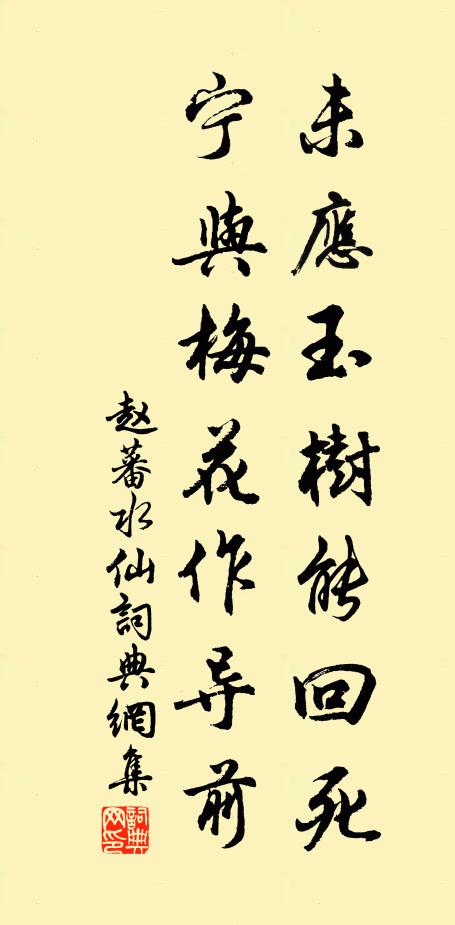 未應玉樹能回死
宁與梅花作导前
赵蕃水仙詞典網集
詞典網印